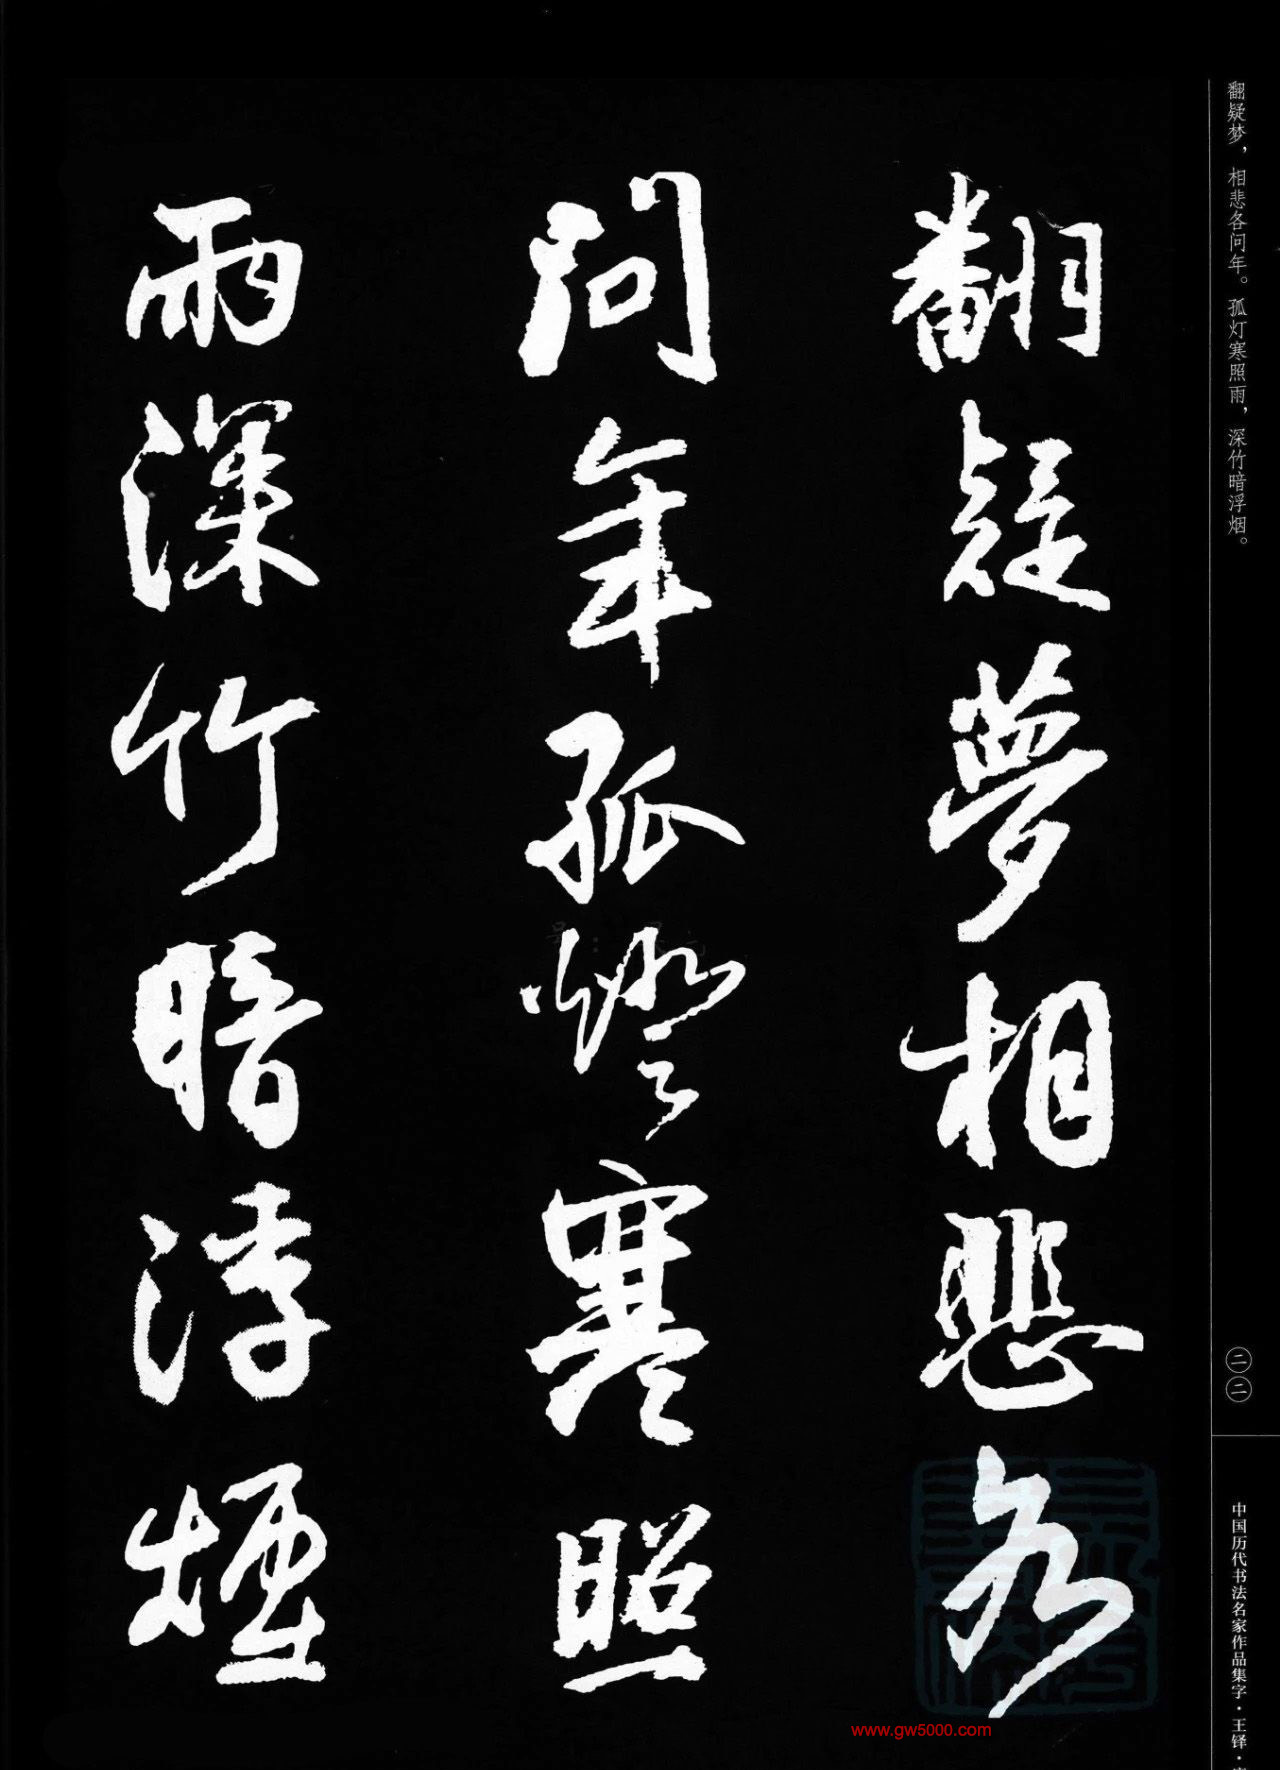 翻疑梦，相悲各问年。孤灯寒照雨，深竹暗浮烟。
二二
中国历代书法名家作品集字·王铎·
翻疑夢相悲各
问年孤燈寒照
雨深竹暗浮煙
www.gw5000.com